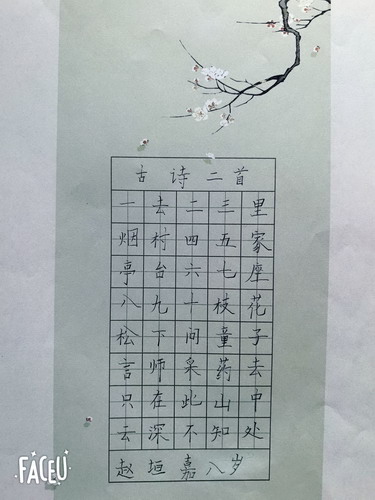 古诗二首
一去二三里
烟村四五家
亭台六七座
八九十枝花
松下问童子
言师采药去
只在此山中
云深不知处
赵垣嘉八岁
FACEU